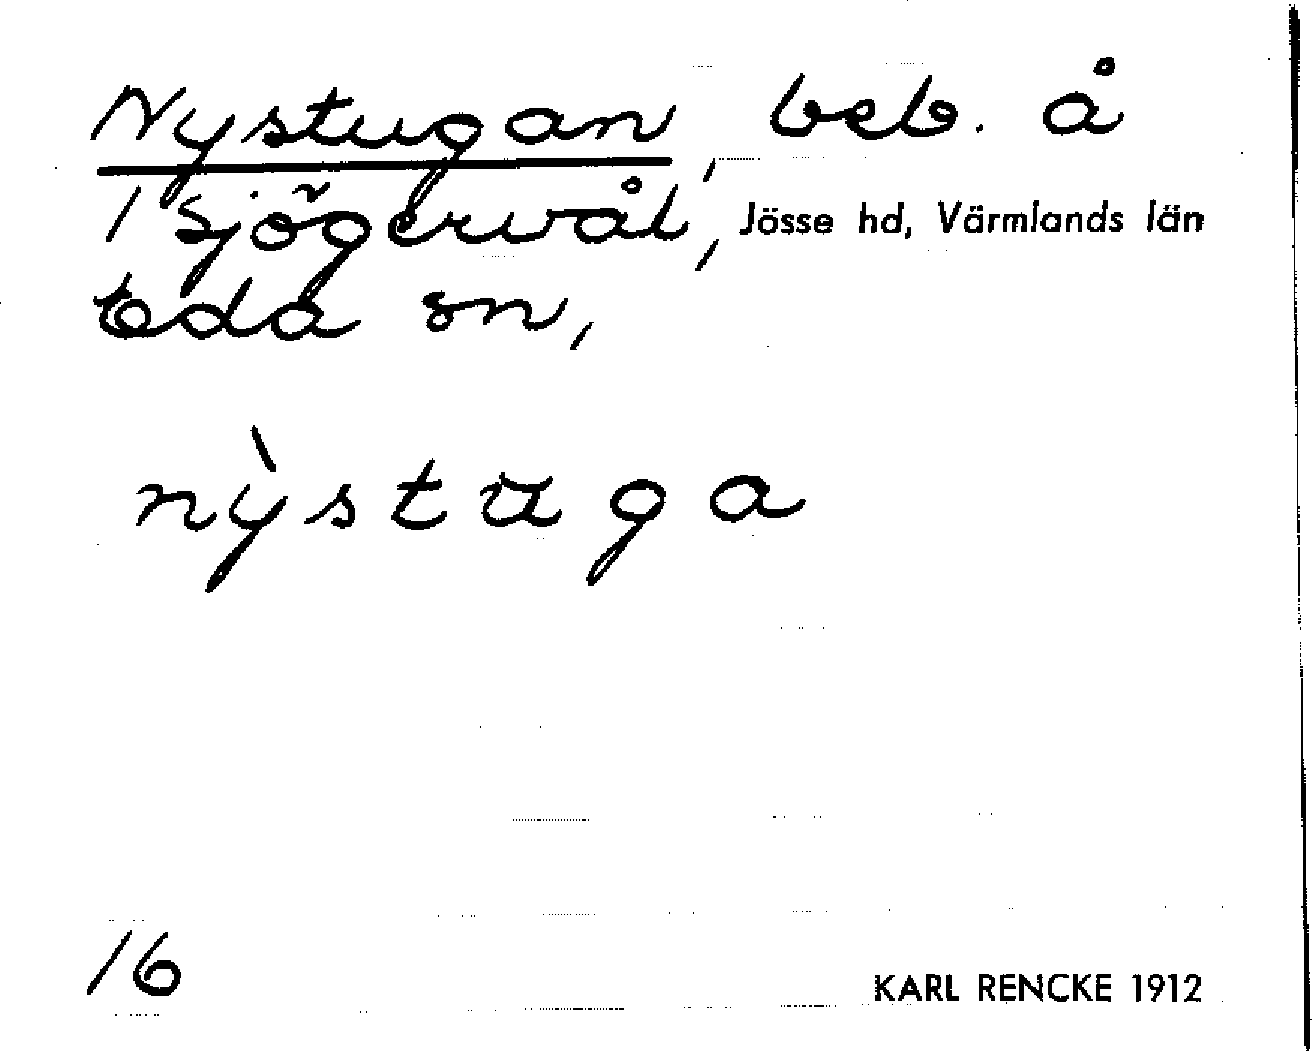 Nystugan, beb. å
1 Sjögervål, Jösse hd, Värmlands län
Eda sn,
nỳstuga
16
KARL RENCKE 1912